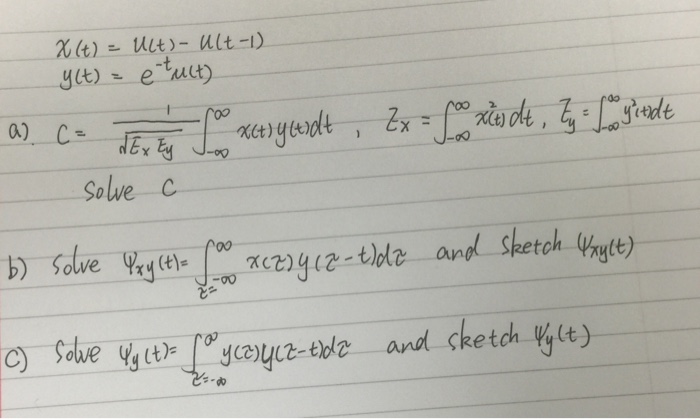 x(t) = u(t) - u(t-1)
y(t) = e^{-t}u(t)
a). C = \frac{1}{\sqrt{E_x E_y}} \int_{-∞}^{∞} x(t)y(t)dt , E_x = \int_{-∞}^{∞} x^2(t)dt, E_y = \int_{-∞}^{∞} y^2(t)dt
Solve C
b) Solve ψ_{xy}(t) = \int_{τ=-∞}^{∞} x(τ)y(τ-t)dτ and sketch ψ_{xy}(t)
c) Solve ψ_y(t) = \int_{τ=-∞}^{∞} y(τ)y(τ-t)dτ and sketch ψ_y(t)